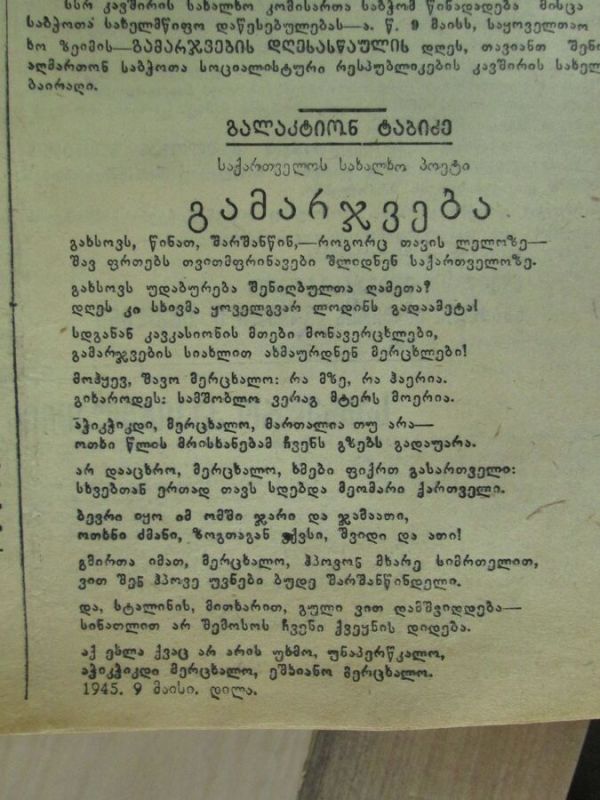 სსრ კავშირის სახალხო კომისართა საბჭომ წინადადება მისცა
საბჭოთა სახელმწიფო დაწესებულებას—ა. წ. 9 მაისს, საყოველთაო
ხო ზეიმის—გამარჯვების დღესასწაულის დღეს, თავიანთ შენ
აღმართონ საბჭოთა სოციალისტური რესპუბლიკების კავშირის სახელ
ბაირაღი.
გალაკტიონ ტაბიძე
საქართველოს სახალხო პოეტი
გამარჯვება
გახსოვს, წინათ, შარშანწინ,—როგორც თავის ლელოზე—
შავ ფრთებს თვითმფრინავები შლიდნენ საქართველოზე.
გახსოვს უდაბურება შენიღბულთა ღამეთა?
დღეს კი სხივმა ყოველგვარ ლოდინს გადაამეტა!
სდგანან კავკასიონის მთები მონავერცხლები,
გამარჯვების სიახლით ახმაურდნენ მერცხლები!
მოჰყევ, შავო მერცხალო: რა მზე, რა ჰაერია.
გიხაროდეს: სამშობლო ვერაგ მტერს მოერია.
აჭიკჭიკდი, მერცხალო, მართალია თუ არა—
ოთხი წლის მრისხანებამ ჩვენს გზებს გადაუარა.
არ დააცხრო, მერცხალო, ხმები ფიქრთ გასართველი:
სხვებთან ერთად თავს სდებდა მეომარი ქართველი.
ბევრი იყო იმ ომში ჯარი და ჯამაათი,
ოთხნი ძმანი, ზოგთაგან ექვსი, შვიდი და ათი!
გმირთა იმათ, მერცხალო, ჰპოვონ მხარე სიმრთელით,
ვით შენ ჰპოვე უვნები ბუდე შარშანწინდელი.
და, სტალინის, მითხარით, გული ვით დამშვიდდება—
სინათლით არ შემოსოს ჩვენი ქვეყნის დიდება.
აქ ეხლა ქვაც არ არის უხმო, უნაპერწკალო,
აჭიკჭიკდი მერცხალო, ეშხიანო მერცხალო.
1945. 9 მაისი. დილა.